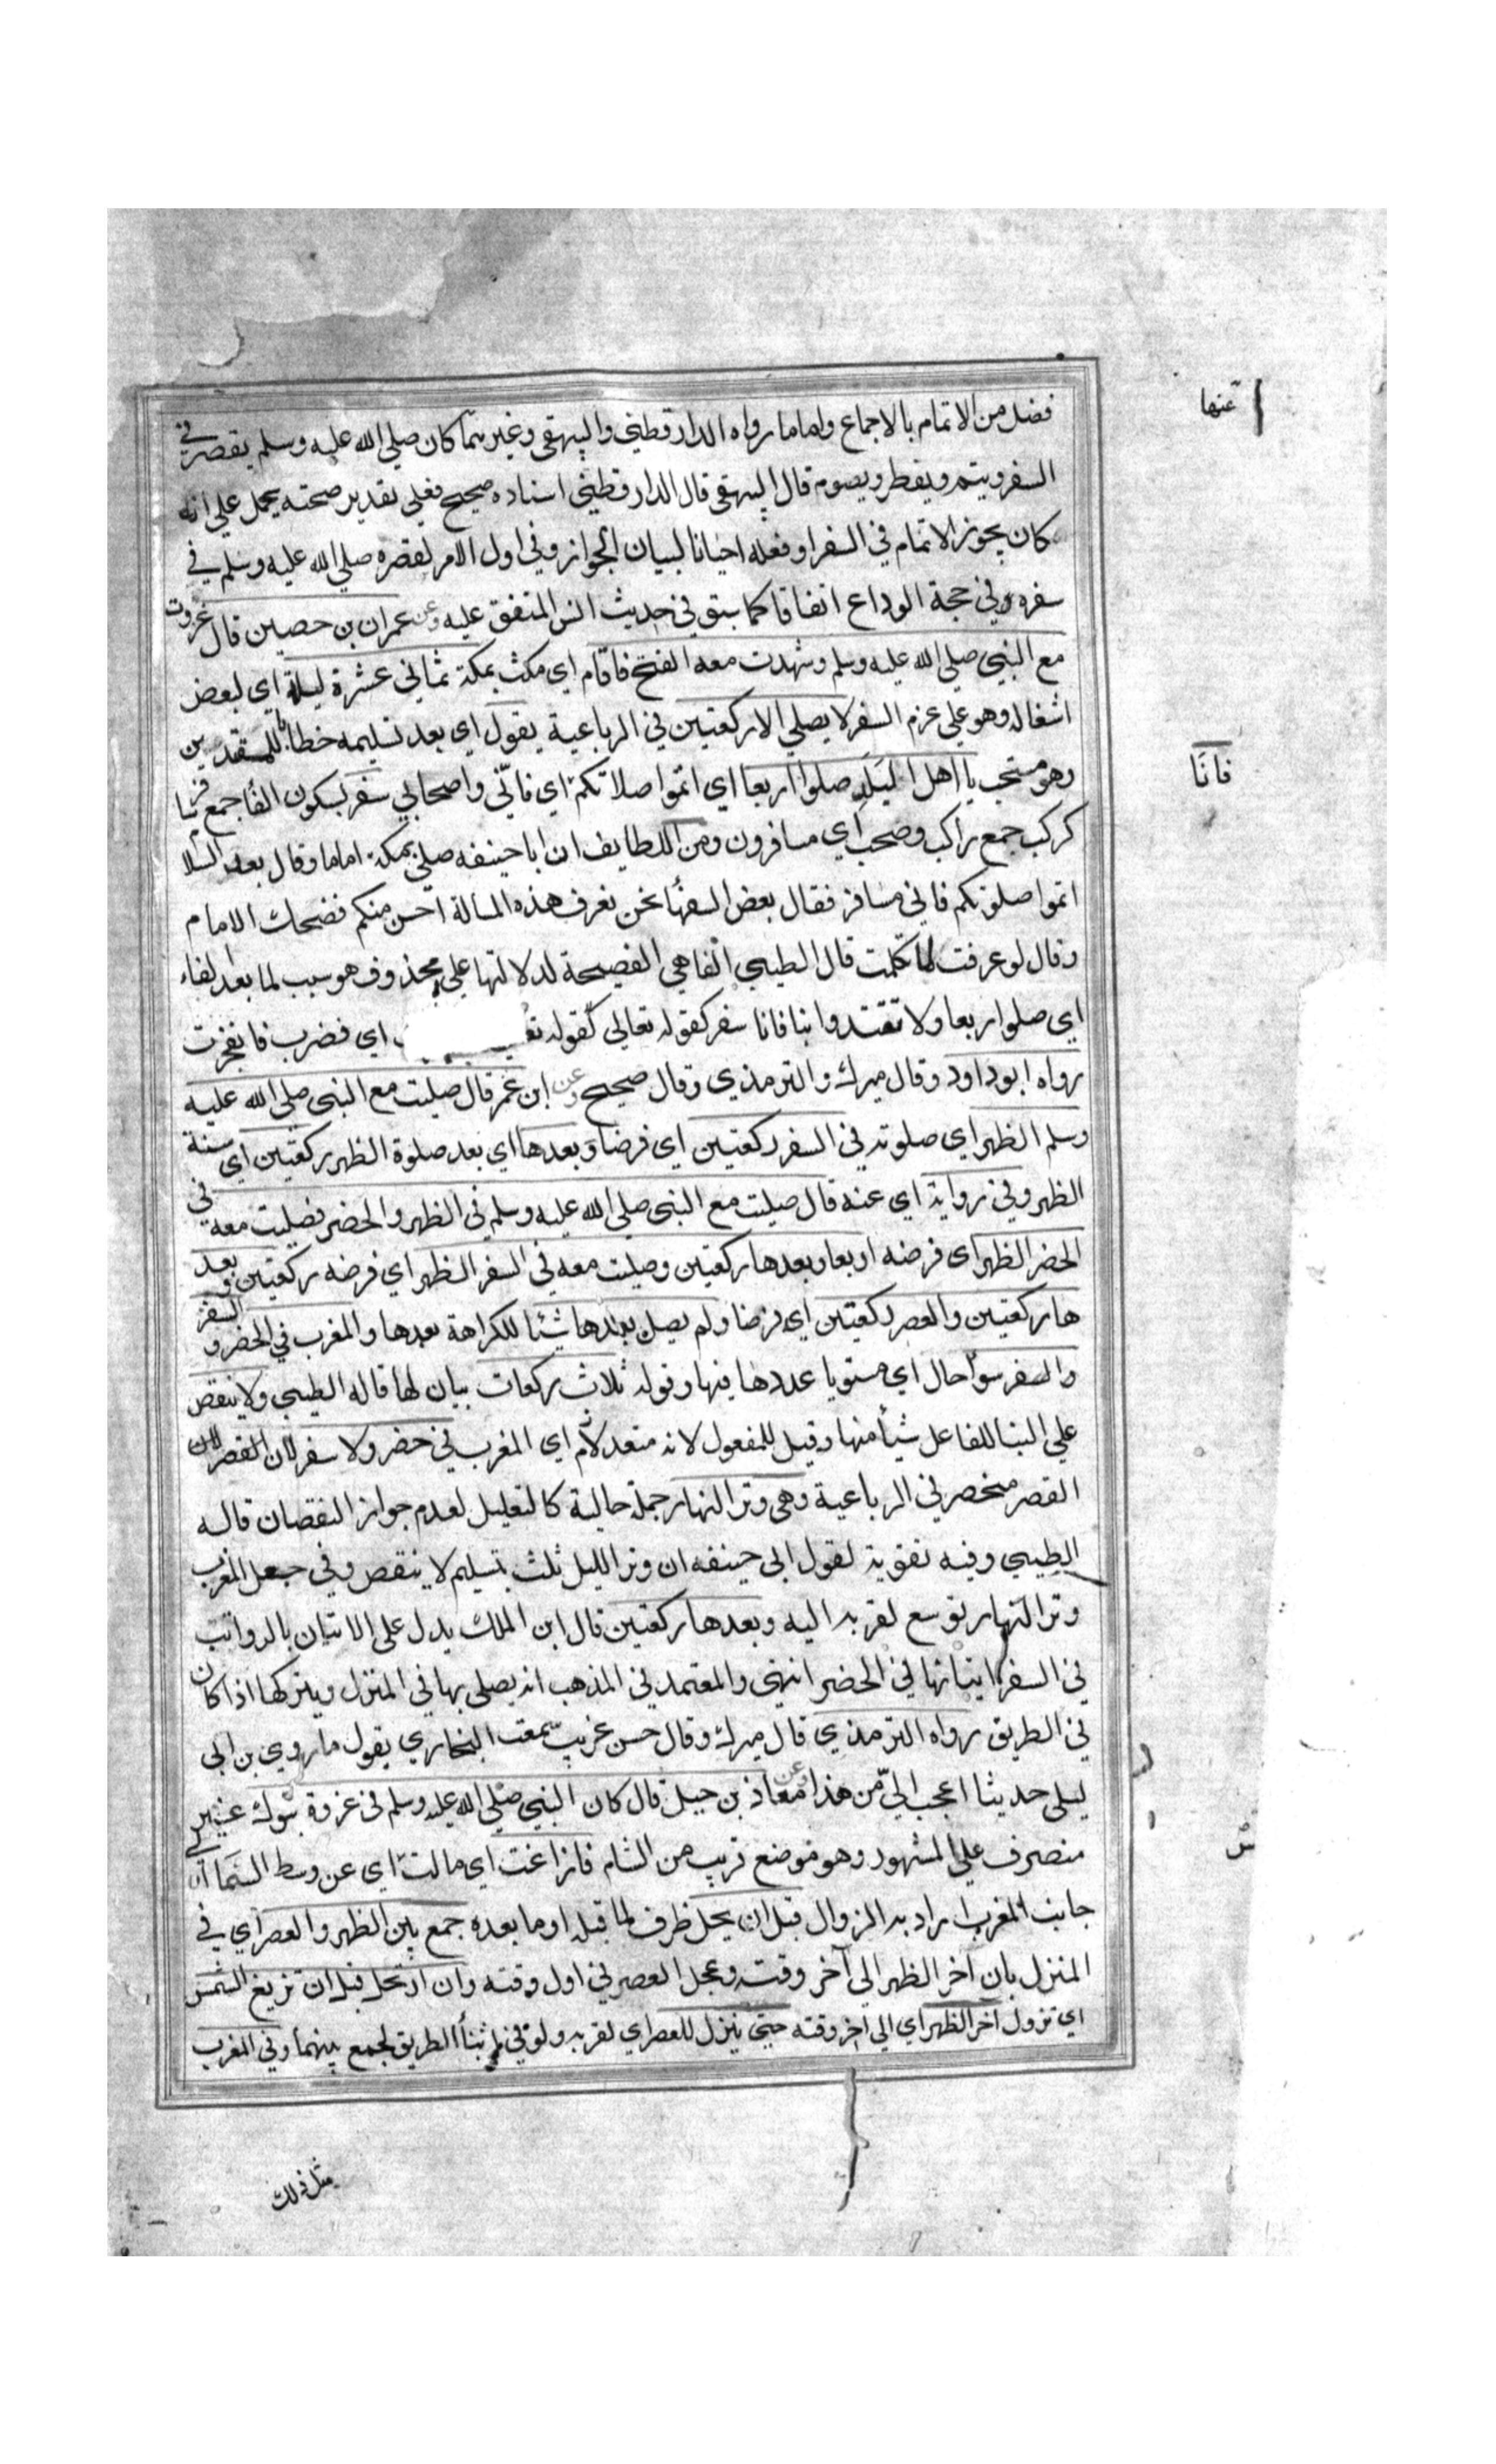 فضل من الاتمام بالاجماع واما ما رواه الدارقطني والبيهقي وغيرهما كان صلي الله عليه وسلم يقصر في
السفر ويتم ويفطر ويصوم قال البيهقي قال الدارقطني اسناده صحيح فعلي تقدير صحته يحمل علي انه
كان يجوز الاتمام في السفر او فعله احيانا لبيان الجواز وفي اول الامر لقصره صلي الله عليه وسلم في
سفره وفي حجة الوداع اتفاقا كما سبق في حديث انس المتفق عليه وعن عمران بن حصين قال غزوت
مع النبي صلي الله عليه وسلم وشهدت معه الفتح فاقام اي مكث بمكة ثماني عشرة ليلة اي لبعض
اشغاله وهو علي عزم السفر لا يصلي الا ركعتين في الرباعية يقول اي بعد تسليمه خطابا للمقتدين
وهو مستحب يا اهل البلد صلوا اربعا اي اتموا صلاتكم اي فاني واصحابي سفر بسكون الفا جمع
كركب جمع راكب وصحب اي مسافرون ومن اللطايف ان ابا حنيفه صلي بمكة اماما وقال بعد السلا
اتموا صلوتكم فاني مسافر فقال بعض السفهأ نحن نعرف هذه المسالة احسن منكم فضحك الامام
وقال لو عرفت لما تكلمت قال الطيبي الفا هي الفصيحة لدلالتها علي محذوف هو سبب لما بعد لفاء
اي صلوا اربعا ولا تقتدوا بنا فانا سفر كقوله تعالي كقوله اي فضرب فانفجرت
رواه ابو داود وقال ميرك والترمذي وقال صحيح وعن ابن عمر قال صليت مع النبي صلي الله عليه
وسلم الظهر اي صلوته في السفر ركعتين اي فرضا وبعدها اي بعد صلوة الظهر ركعتين اي سنة
الظهر وفي رواية اي عنه قال صليت مع النبي صلي الله عليه وسلم في الظهر والحضر فصليت معه في
الحضر الظهر اي فرضه اربعا وبعدها ركعتين وصليت معه في السفر الظهر اي فرضه ركعتين وبعد
ها ركعتين والعصر ركعتين اي فرضا ولم يصل بعدها شيئا للكراهة بعدها والمغرب في الحضر و السفر
والسفر سوأ حال اي مستويا عددها فيها وقوله ثلاث ركعات بيان لها قاله الطيبي ولا ينقص
علي البنا للفاعل شيأ منها وقيل للمفعول لانه متعد لازم اي المغرب في حضر ولا سفر لان القصر لان
القصر منحصر في الرباعية وهي وتر النهار جملة حالية كالتعليل لعدم جواز النقصان قاله
الطيبي وفيه تقوية لقول ابي حنيفه ان وتر الليل ثلث بتسليم لا ينقص وفي جعل المغرب
وتر النهار توسع لقربه اليه وبعدها ركعتين قال ابن الملك يدل علي الاتيان بالرواتب
في السفر كاتيانها في الحضر انتهي والمعتمد في المذهب انه يصلي بها في المنزل ويتركها اذا كان
في الطريق رواه الترمذي قال ميرك وقال حسن غريب سمعت البخاري يقول ما روي بن ابي
ليلي حديثا اعجب الي من هذا وعن معاذ بن جبل قال كان النبي صلي الله عليه وسلم في غزوة تبوك غير
منصرف علي المشهور وهو موضع قريب من الشام فازاغت اي مالت اي عن وسط السمأ الي
جانب المغرب اراد به الزوال قبل ان يحل ظرف لما قبله او ما بعده جمع بين الظهر والعصر اي في
المنزل بان اخر الظهر الي آخر وقته وعجل العصر في اول وقته وان ارتحل قبل ان تزيغ الشمس
اي تزول اخر الظهر اي الي اخر وقته حتي ينزل للعصر اي لقربه ولو في اثنأ الطريق لجمع بينهما وفي المغرب
مثل ذلك
عنها
فانا